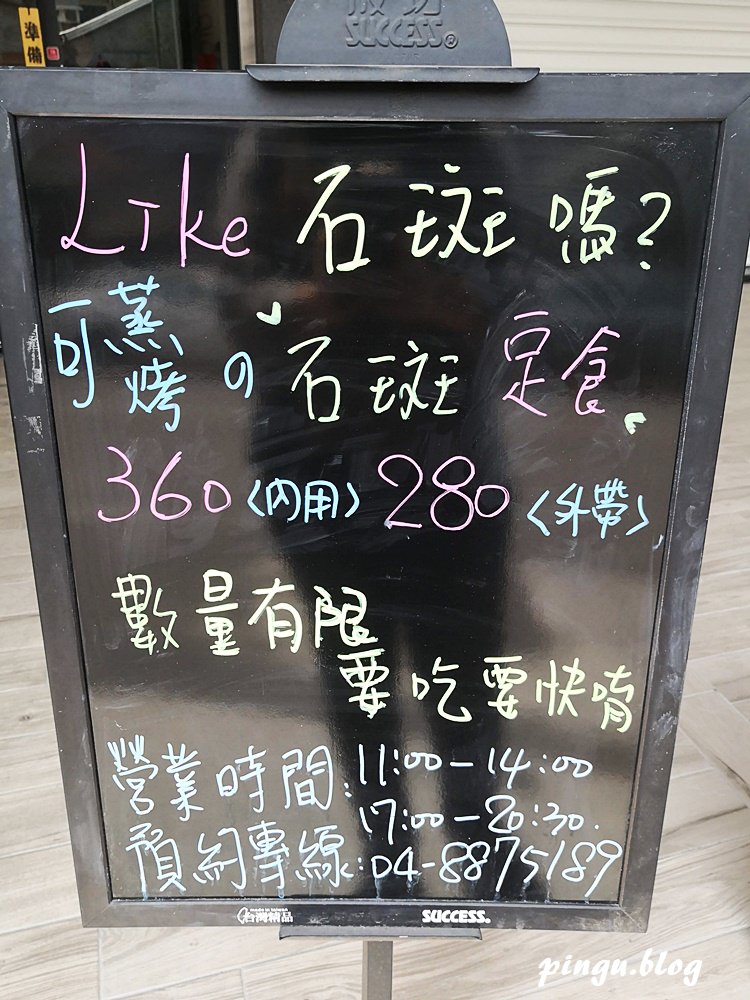 準備
成功
SUCCESS®
Like 石斑嗎?
可蒸烤の石斑定食
360〈內用〉280〈外帶〉
數量有限
要吃要快唷
營業時間:11:00-14:00
17:00-20:30.
預約專線:04-8875189
MADE IN TAIWAN
台灣精品
SUCCESS®
pingu.blog